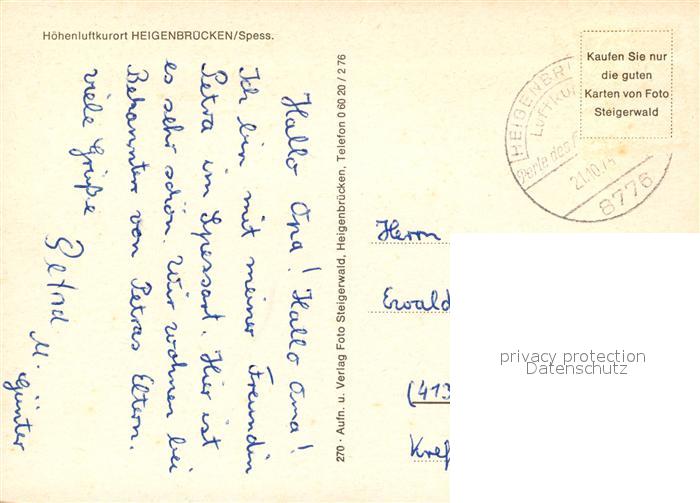 Höhenluftkurort HEIGENBRÜCKEN/Spess.
Hallo Opa! Hallo Oma!
Ich bin mit meiner Freundin
Petra im Spessart. Hier ist
es sehr schön. Wir wohnen bei
Bekannten von Petras Eltern.
viele Grüße
M.
Günter
270 · Aufn. u. Verlag Foto Steigerwald, Heigenbrücken, Telefon 0 60 20 / 2 76
Kaufen Sie nur
die guten
Karten von Foto
Steigerwald
HEIGENBR
LUFTKU
Perle des
21.10.75
8776
Herrn
Ewald
(413
Kref
privacy protection
Datenschutz